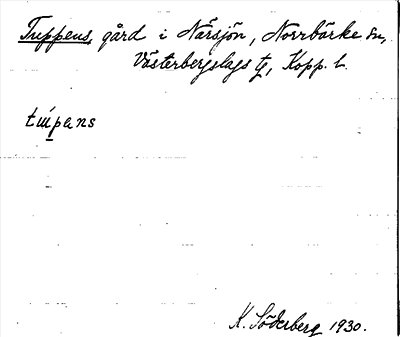 Tuppens, gård i Närsjön, Norrbärke sn,
Västerbergslags tg, Kopp. l.
tupans
K. Söderberg 1930.